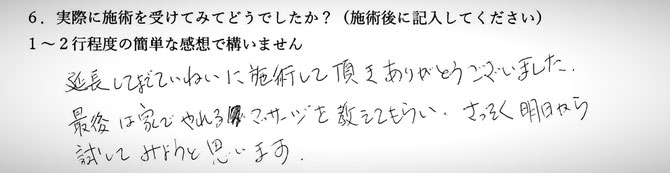 6．実際に施術を受けてみてどうでしたか？（施術後に記入してください）
1～2行程度の簡単な感想で構いません
延長してまでていねいに施術して頂きありがとうございました.
最後は家でやれるマッサージを教えてもらい、さっそく明日から
試してみようと思います.